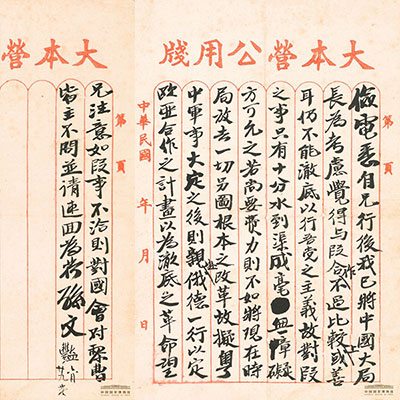 大本營公用牋
第 頁
儉電悉自兄行後我已將中國大局
長為考慮覺得與段合作不過比較或善
耳仍不能澈底以行吾党之主義故對段
之事只有十分水到渠成毫無一障礙
方可允之若尚要費力則不如將現在時
局放去一切另圖根本之改革故擬粵
中軍事大定之後則親赴俄德一行以定
歐亞合作之計畫以為澈底之革命望
中華民國 年 月 日
大本營
第 頁
兄注意如段事不洽則對國會对黎曹
皆主不問並請速回為荷孫文
艷